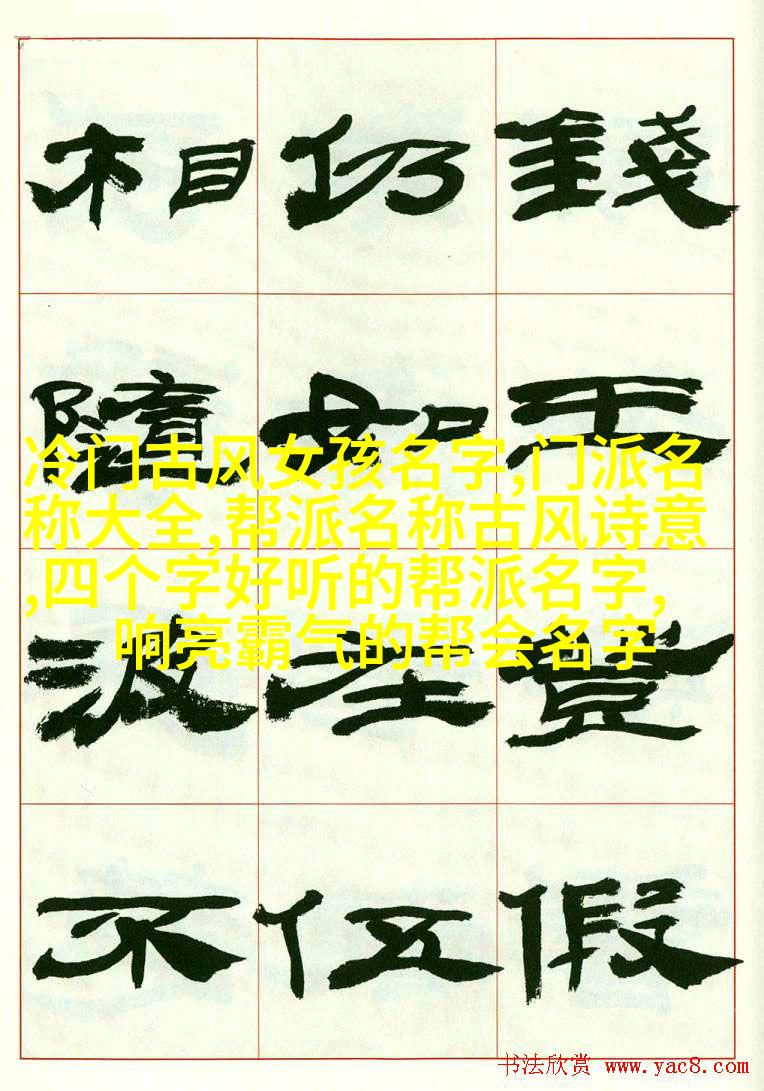 相仍錢
隨如天
冷门古风女孩名字,门派名
称大全,帮派名称古风诗意
,四个字好听的帮派名字,
响亮霸气的帮会名字
波注登
不伍假
书法欣赏 www.yac8.com